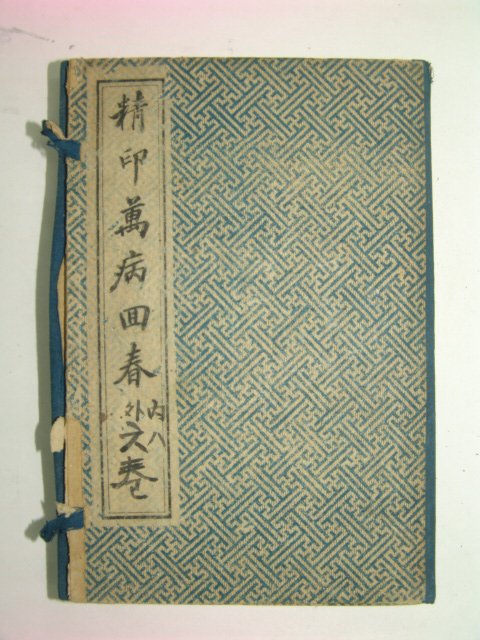 精印萬病回春
內八
外六卷